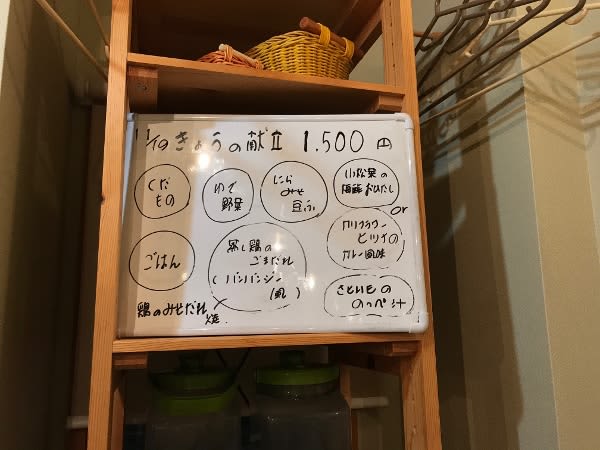 11/10 きょうの献立 1.500円
くだ
もの
ゆで
野菜
にら
みそ
豆ふ
小松菜の
海藻おひたし
or
カリフラワー
とツナの
カレー風味
ごはん
蒸し鶏の
ごまだれ
(バンバンジー
風)
さといもの
のっぺ汁
鶏のみそだれ
焼